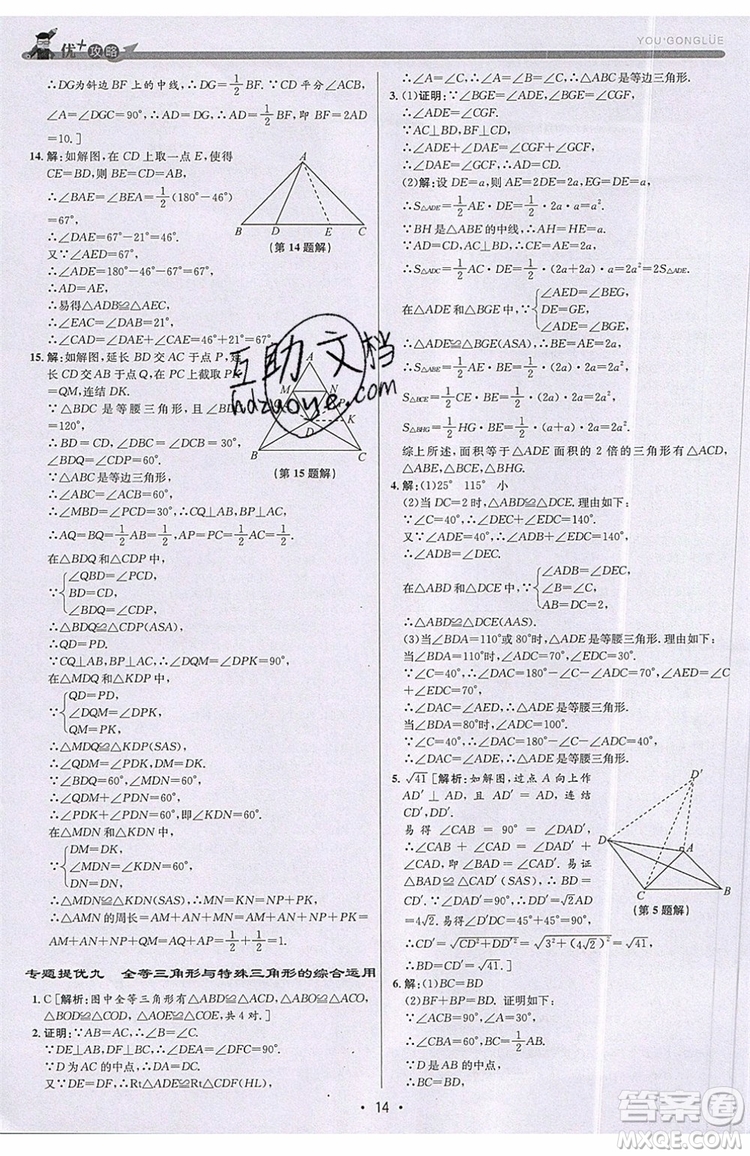 优+攻略
YOU·GONGLÜE
∴DG为斜边 BF 上的中线,∴DG=1/2 BF. ∵CD 平分∠ACB,
∴∠ADC=∠GDC=90°,∴AD=DG, ∴AD=1/2 BF, 即 BF=2AD
=10.]
14.解:如解图,在 CD 上取一点 E,使得
CE=BD,则 BE=CD=BA.
∴∠BAE=∠BEA=1/2(180°-46°)
=67°.
∴∠AED=67°.
∴∠EAD=67°-21°=46°.
又∵∠AED=67°,
∴AD=AE.
∴易得△ADB≌△AEC.
∴∠EAC=∠DAB=21°.
∴∠CAD=∠EAD+∠EAC=46°+21°=67°.
A
B D E C
(第 14 题解)
15.解:如解图,延长 BD 交 AC 于点 P,延
长 CD 交 AB 于点 Q,在 PC 上截取 PK
=QM,连结 DK.
∵△BDC 是等腰三角形,且∠BDC
=120°,
∴BD=CD,∠DBC=∠DCB=30°.
∵△ABC 是等边三角形,
∴∠ABC=∠ACB=60°.
∴∠MBD=∠PCD=30°,CQ⊥AB.
∴AQ=BQ=1/2 AB=1/2 AC=CP=AP.
在△BDQ 和△CDP 中,
∵{∠QBD=∠PCD,
BD=CD,
∠BDQ=∠CDP,
∴△BDQ≌△CDP(ASA).
∴QD=PD.
∵CQ⊥AB,BP⊥AC,∴∠DQM=∠DPK=90°.
在△MDQ 和△KDP 中,
∵{QD=PD,
∠DQM=∠DPK,
QM=PK,
∴△MDQ≌△KDP(SAS),∴DM=DK.
∴∠QDM=∠PDK.
∴∠QDM+∠PDN=60°,
∴∠PDK+∠PDN=60°,即∠KDN=60°.
在△MDN 和△KDN 中,
∵{DM=DK,
∠MDN=∠KDN=60°,
DN=DN,
∴△MDN≌△KDN(SAS).∴MN=NK=NP+PK.
∴△AMN 的周长=AM+AN+MN=AM+AN+NP+PK
=AM+AN+NP+QM=AQ+AP=1/2+1/2=1.
A
M N
P
K
D
B C
(第 15 题解)
专题提优九 全等三角形与特殊三角形的综合运用
1.C [解析:图中全等三角形有△ABD≌△ACD,△ABO≌△ACO,
△BOD≌△COD,△AOE≌△COE,共 4 对.]
2.证明:∵AB=AC,∴∠B=∠C.
∵DE⊥AB,DF⊥BC,∴∠AED=∠CFD=90°.
∵D 为 AC 的中点,∴DA=DC.
又∵DE=DF,∴Rt△ADE≌Rt△CDF(HL),
∴∠A=∠C.∴∠A=∠B=∠C,∴△ABC 是等边三角形.
3.(1)证明:∵∠BGE=∠ADE,∠BGE=∠CGF,
∴∠ADE=∠CGF.
∵AC⊥BD,BF⊥CD,
∴∠ADE+∠DAE=∠CGF+∠GCF.
∴∠DAE=∠GCF,∴AD=CD.
(2)解:设 DE=a,则 AE=2DE=2a,EG=DE=a,
∴S△ADE=1/2 AE·DE=1/2·2a·a=a².
∵BH 是△ABE 的中线,∴AH=HE=a.
∵AD=CD,AC⊥BD,∴CE=AE=2a,
∴S△ADC=1/2 AC·DE=1/2·(2a+2a)·a=2a²=2S△ADE.
在△ADE 和△BGE 中,∵{∠AED=∠BEG,
DE=GE,
∠ADE=∠BGE,
∴△ADE≌△BGE(ASA),∴BE=AE=2a.
∴S△ABE=1/2 AE·BE=1/2·(2a)·2a=2a²,
S△BCE=1/2 CE·BE=1/2·(2a)·2a=2a²,
S△BHG=1/2 HG·BE=1/2·(a+a)·2a=2a².
综上所述,面积等于△ADE 面积的 2 倍的三角形有△ACD,
△ABE,△BCE,△BHG.
4.解:(1)25° 115° 小
(2)当 DC=2 时,△ABD≌△DCE. 理由如下:
∵∠C=40°,∴∠DEC+∠EDC=140°.
又∵∠ADE=40°,∴∠ADB+∠EDC=140°.
∴∠ADB=∠DEC.
又∵AB=DC=2,∴在△ABD 和△DCE 中,∵{∠ADB=∠DEC,
∠B=∠C,
AB=DC=2,
∴△ABD≌△DCE(AAS).
(3)当∠BDA=110°或 80°时,△ADE 是等腰三角形. 理由如下:
当∠BDA=110°时,∠ADC=70°.
∵∠C=40°,∴∠DAC=180°-∠C-∠ADC=70°,
∴∠AED=∠C+∠EDC=30°+40°=70°,
∴∠DAC=∠AED,∴△ADE 是等腰三角形;
当∠BDA=80°时,∠ADC=100°.
∵∠C=40°,∴∠DAC=180°-∠C-∠ADC=40°,
∴∠DAC=∠ADE,∴△ADE 是等腰三角形.
5.√41 [解析:如解图,过点 A 向左作
AD′⊥AD,且 AD′=AD,连结
CD′,DD′.
易得∠CAB=90°=∠DAD′,
∴∠CAB+∠CAD=∠DAD′+
∠CAD,∴∠BAD=∠CAD′. 易证
△BAD≌△CAD′,∴BD=CD′,DD′
=4√2. 易得∠D′DC=45°+45°=90°,
∴CD′=√(CD²+DD′²)=√(3²+(4√2)²)=√41,
∴BD=CD′=√41.]
D′
D
A
C B
(第 5 题解)
6.解:(1)BC=BD
(2)BF+BP=BD. 证明如下:
∵∠ACB=90°,∠A=30°,
∴∠CBA=60°,BC=1/2 AB.
∵D 是 AB 的中点,
∴BC=BD,
· 14 ·
互助文档
hdzuoye.com
答案圈
MXQE.COM